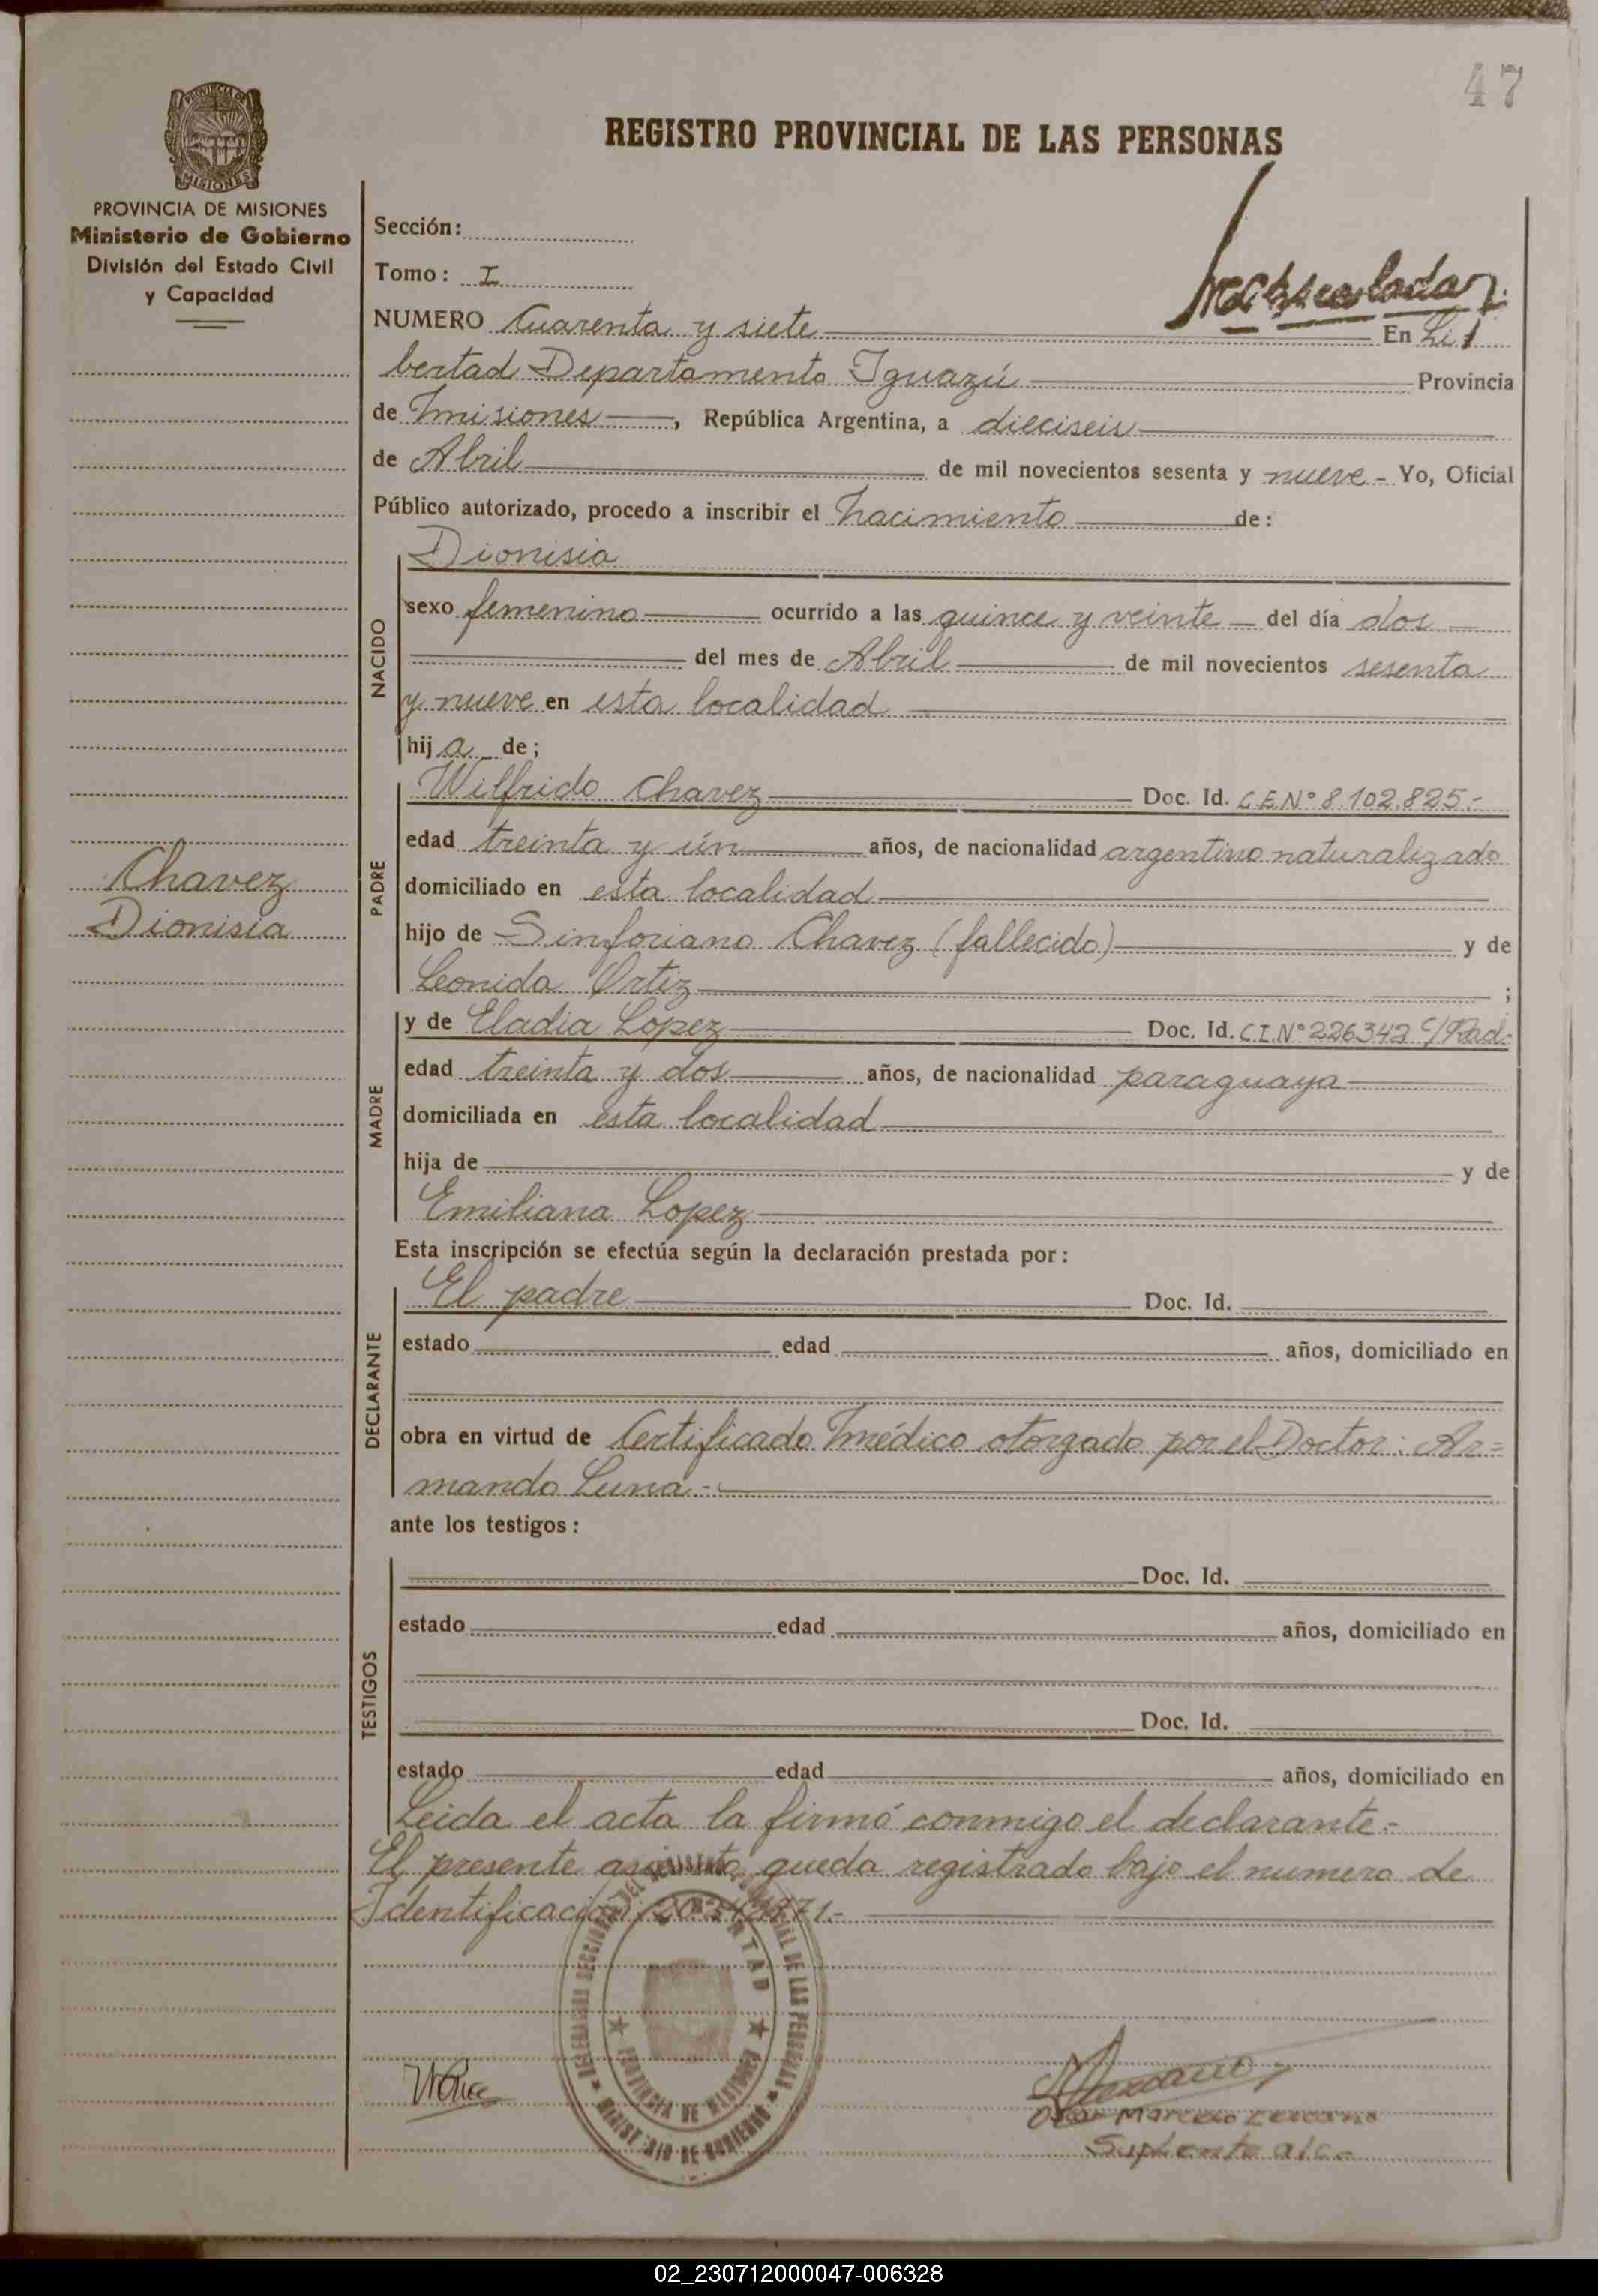 47
REGISTRO PROVINCIAL DE LAS PERSONAS
PROVINCIA DE MISIONES
Ministerio de Gobierno
División del Estado Civil
y Capacidad
Sección:
Tomo: I
NUMERO Cuarenta y siete En Li
bertad Departamento Iguazú Provincia
de Misiones, República Argentina, a dieciseis
de Abril de mil novecientos sesenta y nueve - Yo, Oficial
Público autorizado, procedo a inscribir el Nacimiento de:
NACIDO
Dionisia
sexo femenino ocurrido a las quince y veinte del día dos
del mes de Abril de mil novecientos sesenta
y nueve en esta localidad
hij a de;
PADRE
Wilfrido Chavez Doc. Id. C.E.Nº 8.102.825.-
edad treinta y ún años, de nacionalidad argentino naturalizado
Chavez
Dionisia
domiciliado en esta localidad
hijo de Sinforiano Chavez (fallecido) y de
Leonida Ortiz ;
MADRE
y de Eladia Lopez Doc. Id. C.I.Nº 226342 C/Rad.-
edad treinta y dos años, de nacionalidad paraguaya
domiciliada en esta localidad
hija de y de
Emiliana Lopez
Esta inscripción se efectúa según la declaración prestada por:
DECLARANTE
El padre Doc. Id.
estado edad años, domiciliado en
obra en virtud de Certificado Médico otorgado por el Doctor: Ar=
mando Luna.-
ante los testigos:
TESTIGOS
Doc. Id.
estado edad años, domiciliado en
Doc. Id.
estado edad años, domiciliado en
Leida el acta la firmó conmigo el declarante.-
El presente asiento queda registrado bajo el numero de
Identificación
PROVINCIA DE MISIONES
MINISTERIO DE GOBIERNO
Marcelo
Suplente
02_230712000047-006328